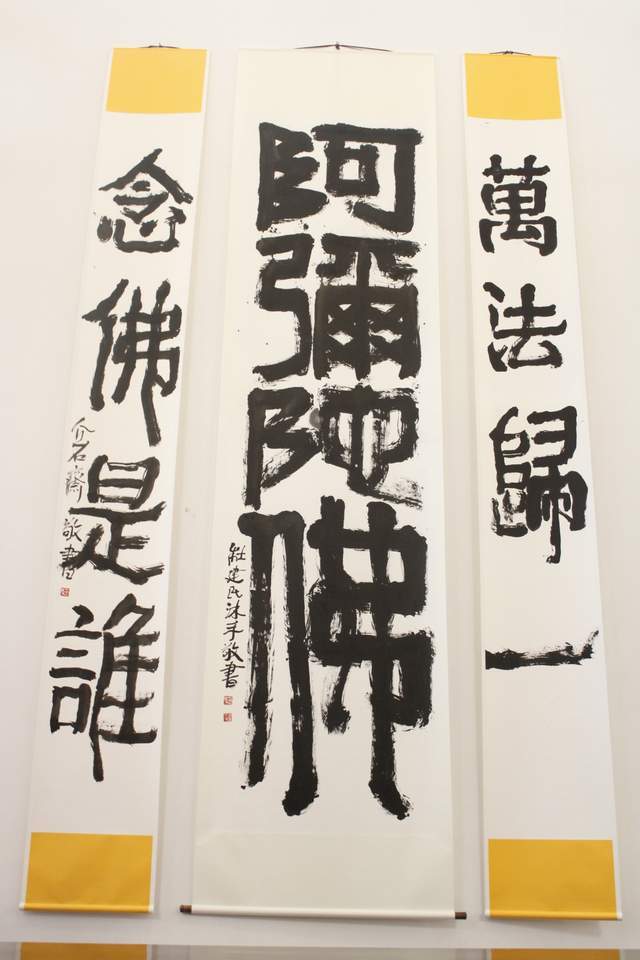 萬法歸一
阿彌陀佛
建民沐手敬書
念佛是誰
介石齋敬書